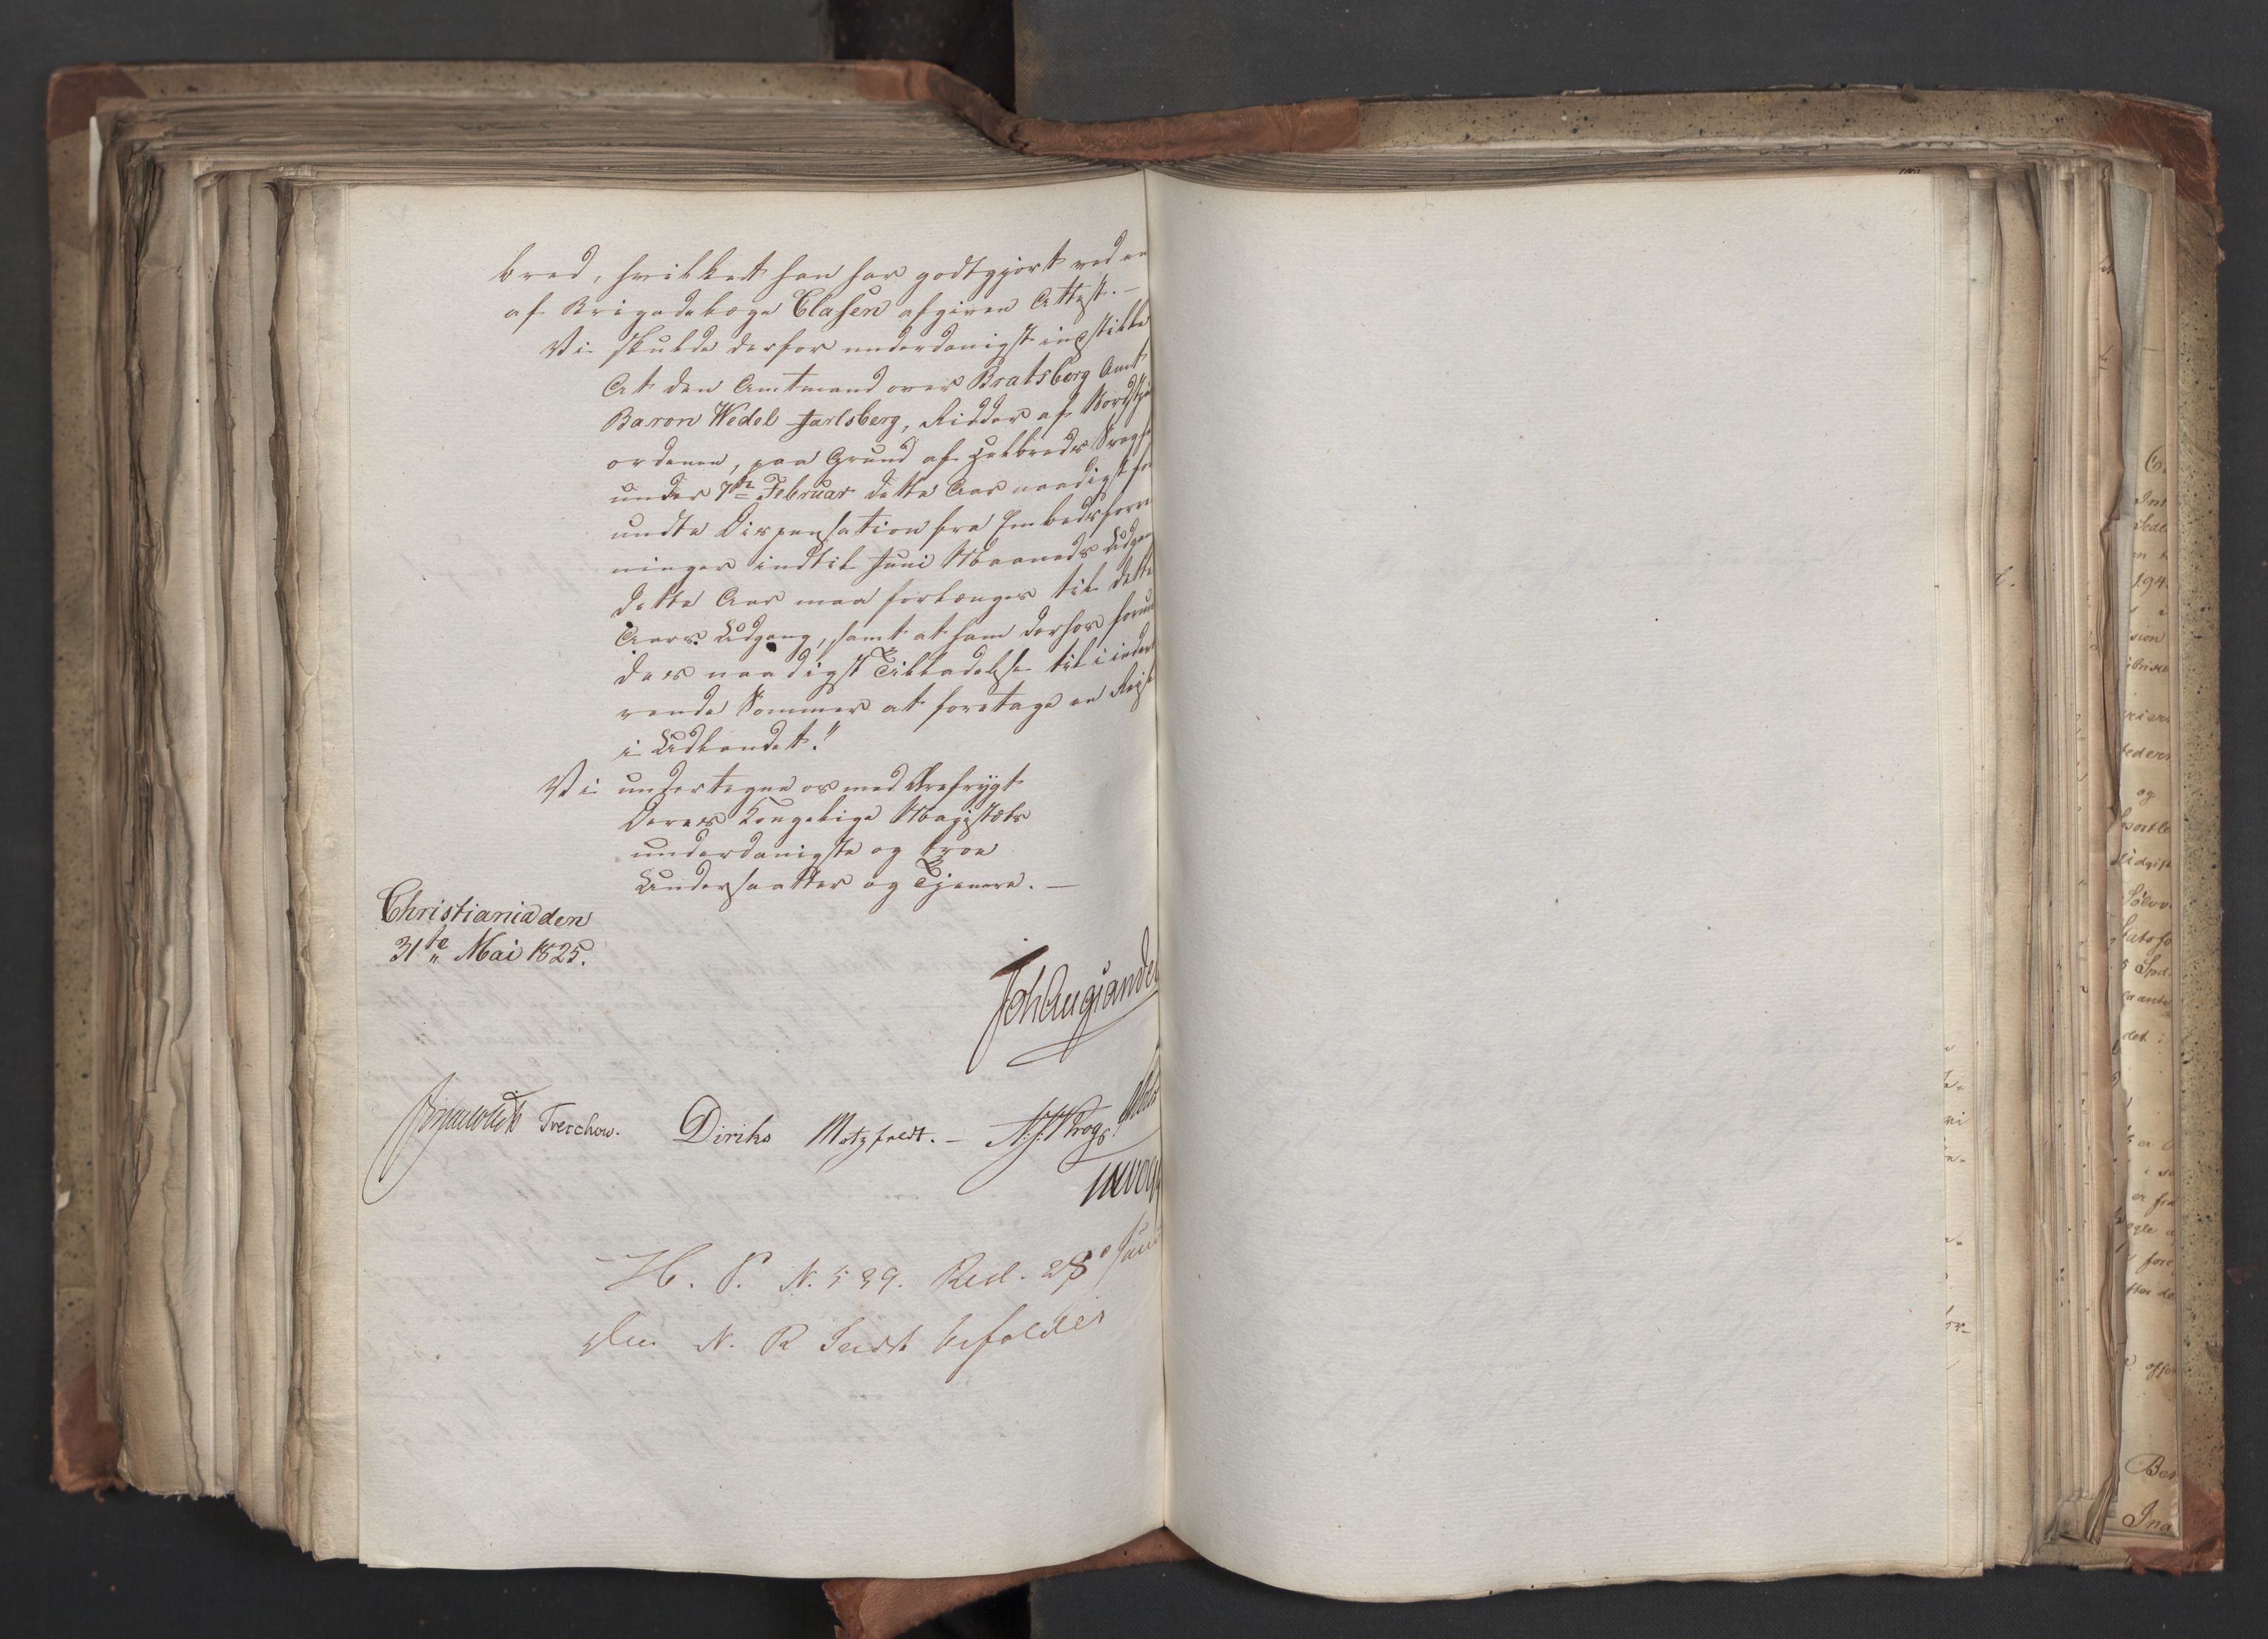 bred, hvilket han har godtgjort ved en
af Brigadelæge Clasen afgiven Attest. –
Vi skulde derfor underdanigst indstille
At den Amtmand over Bratsberg Amt
Baron Wedel Jarlsberg, Ridder af Nordstje
ordenen, paa Grund af Helbreds Svaghe
under 7de Februar dette Aar naadigst for
undte Dispensation fra Embedsforret
ninger indtil Juni Maaneds Udgan
dette Aar maa forlænges til dette
Aars Udgang, samt at ham derhos forun
des naadigst Tilladelse til i indevæ
rende Sommer at foretage en Reise
i Udlandet."
Vi undertegne os med Ærefrygt
Deres Kongelige Majestæts
underdanigste og troe
Undersaatter og Tjenere. –
Christiania den
31te Mai 1825.
Joh Aug Sandel
Treschow. Diriks Motzfeldt. – N. J. Krogs
H. P. N. 539. Red. 28 Juni
Den N. R Indst bifaldes